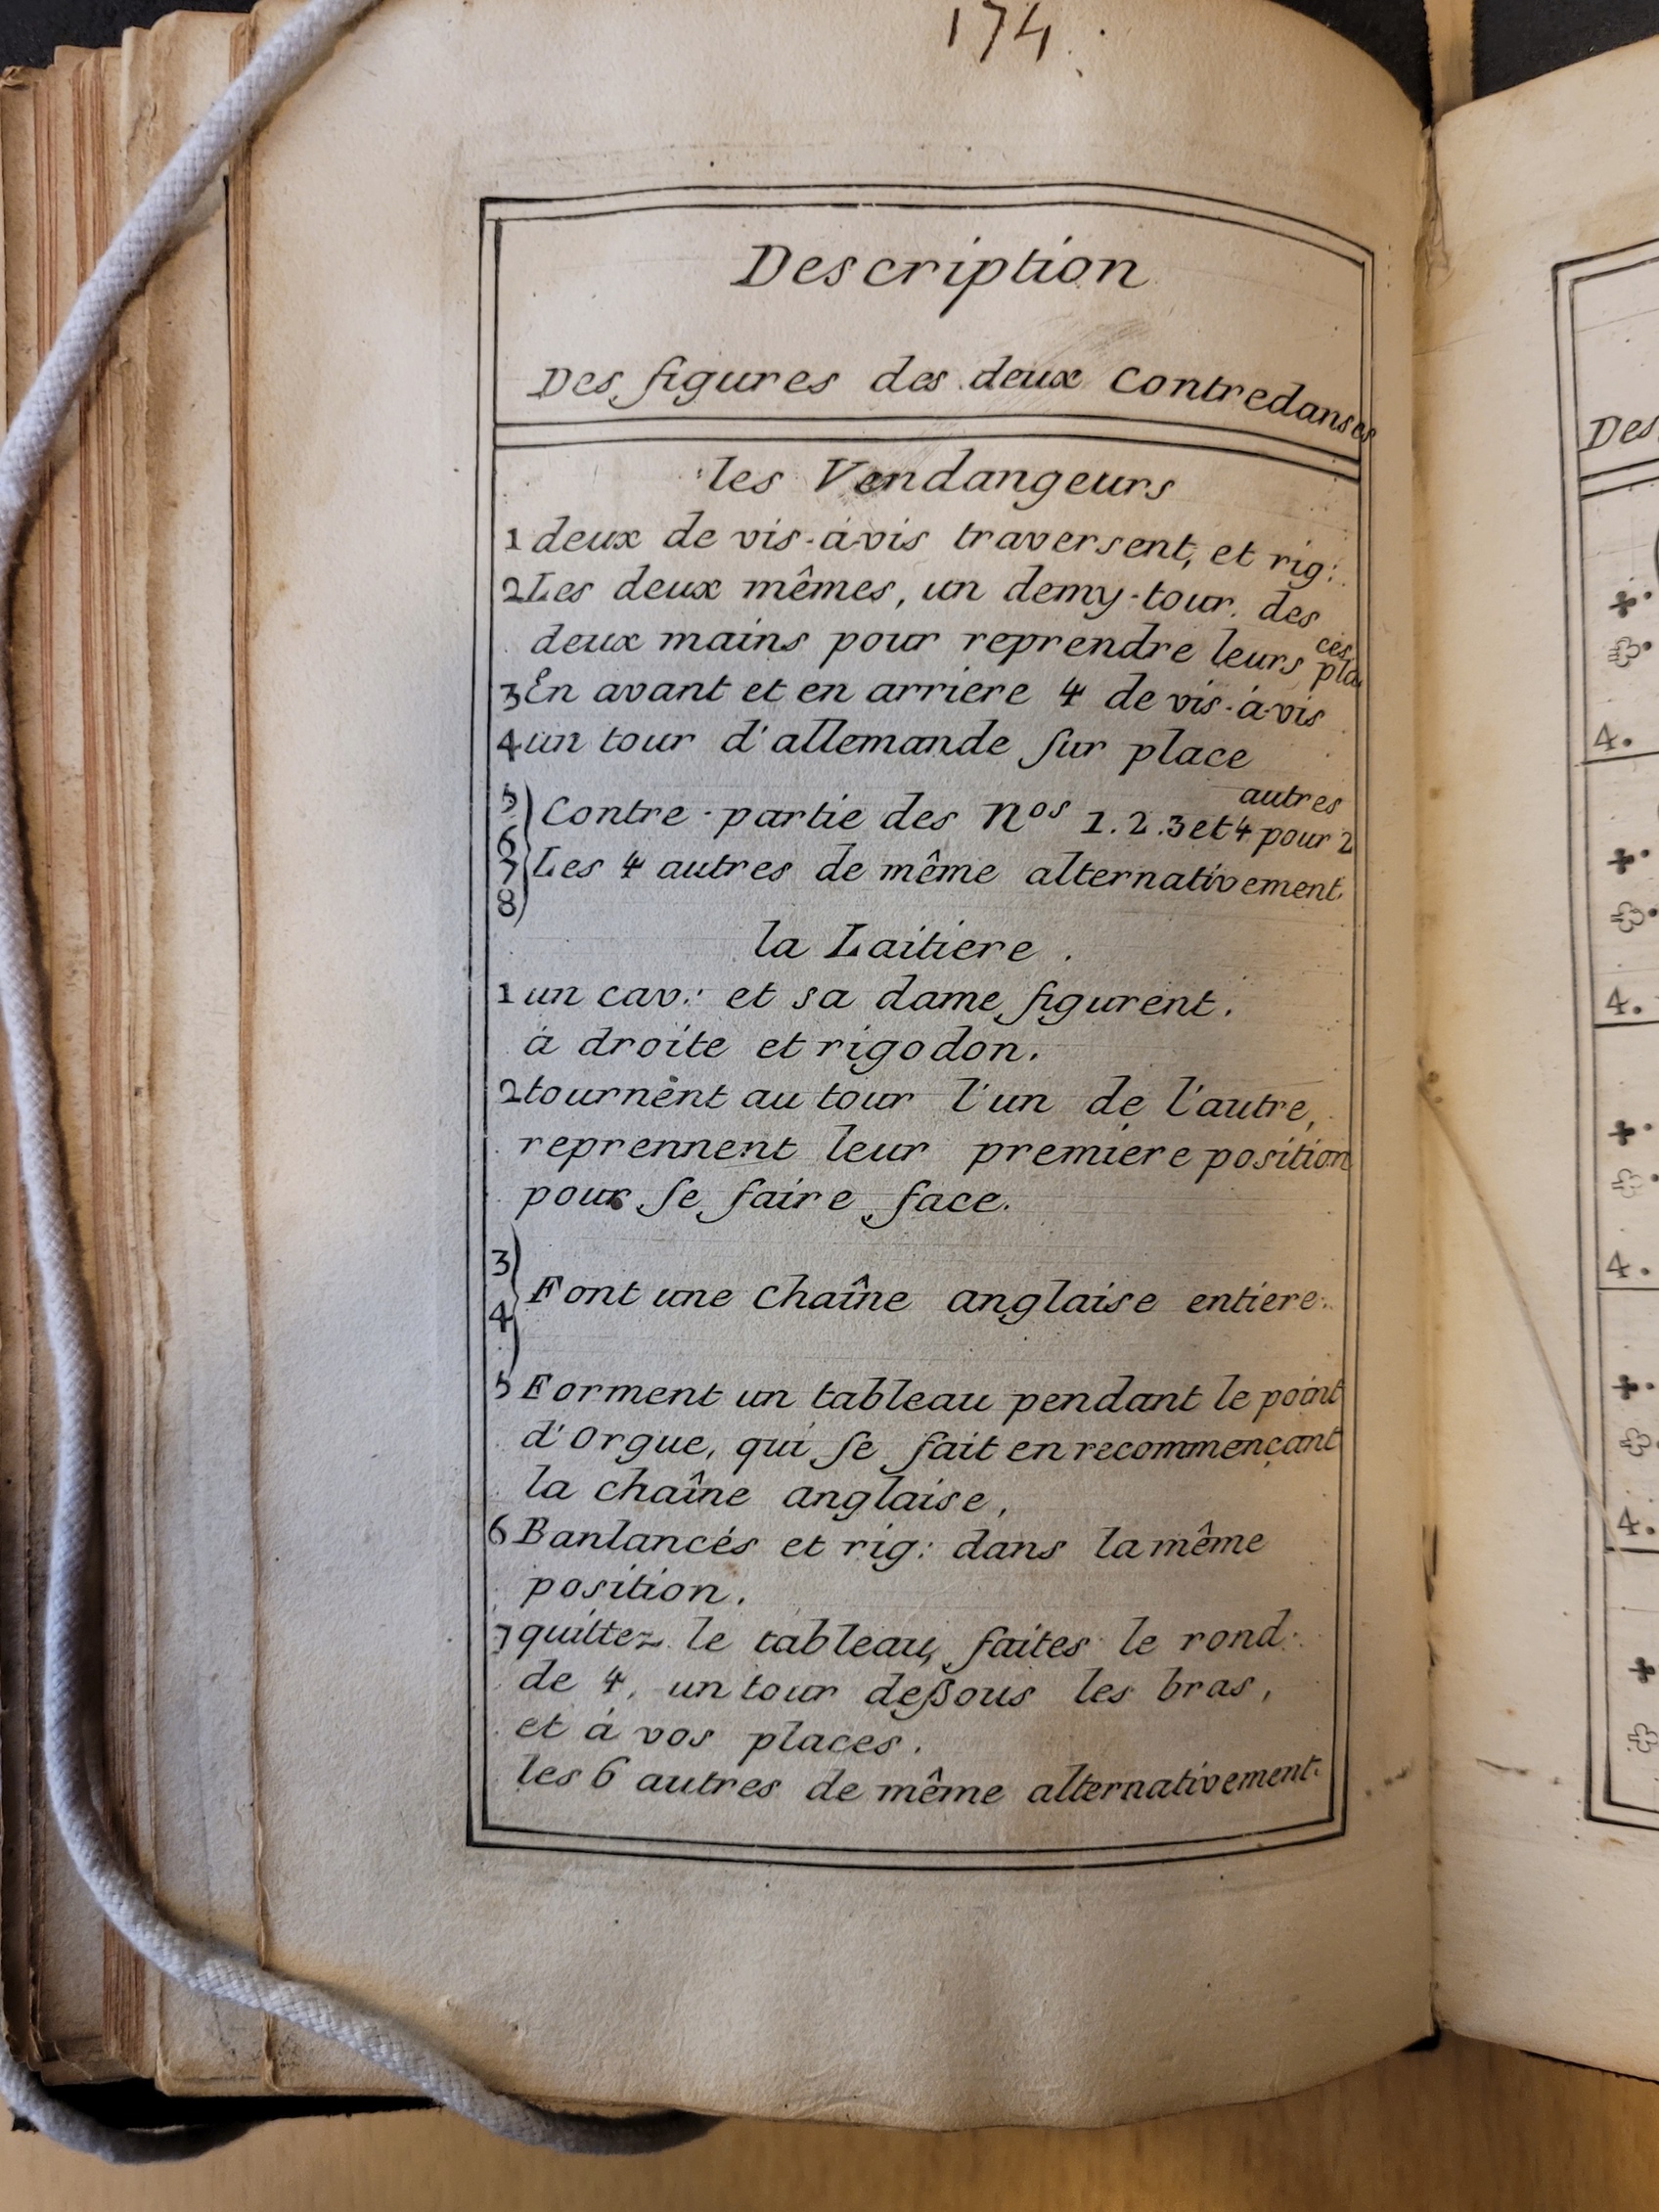 174.
Description
Des figures des deux Contredanses
les Vendangeurs
1 deux de vis-à-vis traversent, et rig:
2 Les deux mêmes, un demy-tour. des
deux mains pour reprendre leurs places
3 En avant et en arriere 4 de vis-à-vis
4 un tour d'allemande sur place
5 6 Contre-partie des Nos 1.2.3 et 4 pour 2 autres
7 8 Les 4 autres de même alternativement.
la Laitiere.
1 un cav.: et sa dame figurent.
à droite et rigodon.
2 tournent au tour l'un de l'autre,
reprennent leur premiere position
pour se faire face.
3 4 Font une chaîne anglaise entiere.
5 Forment un tableau pendant le point
d'Orgue, qui se fait en recommençant
la chaîne anglaise,
6 Banlancés et rig: dans la même
position.
7 quittez le tableau, faites le rond
de 4, un tour deßous les bras,
et à vos places.
les 6 autres de même alternativement.
Des
4.
4.
4.
4.